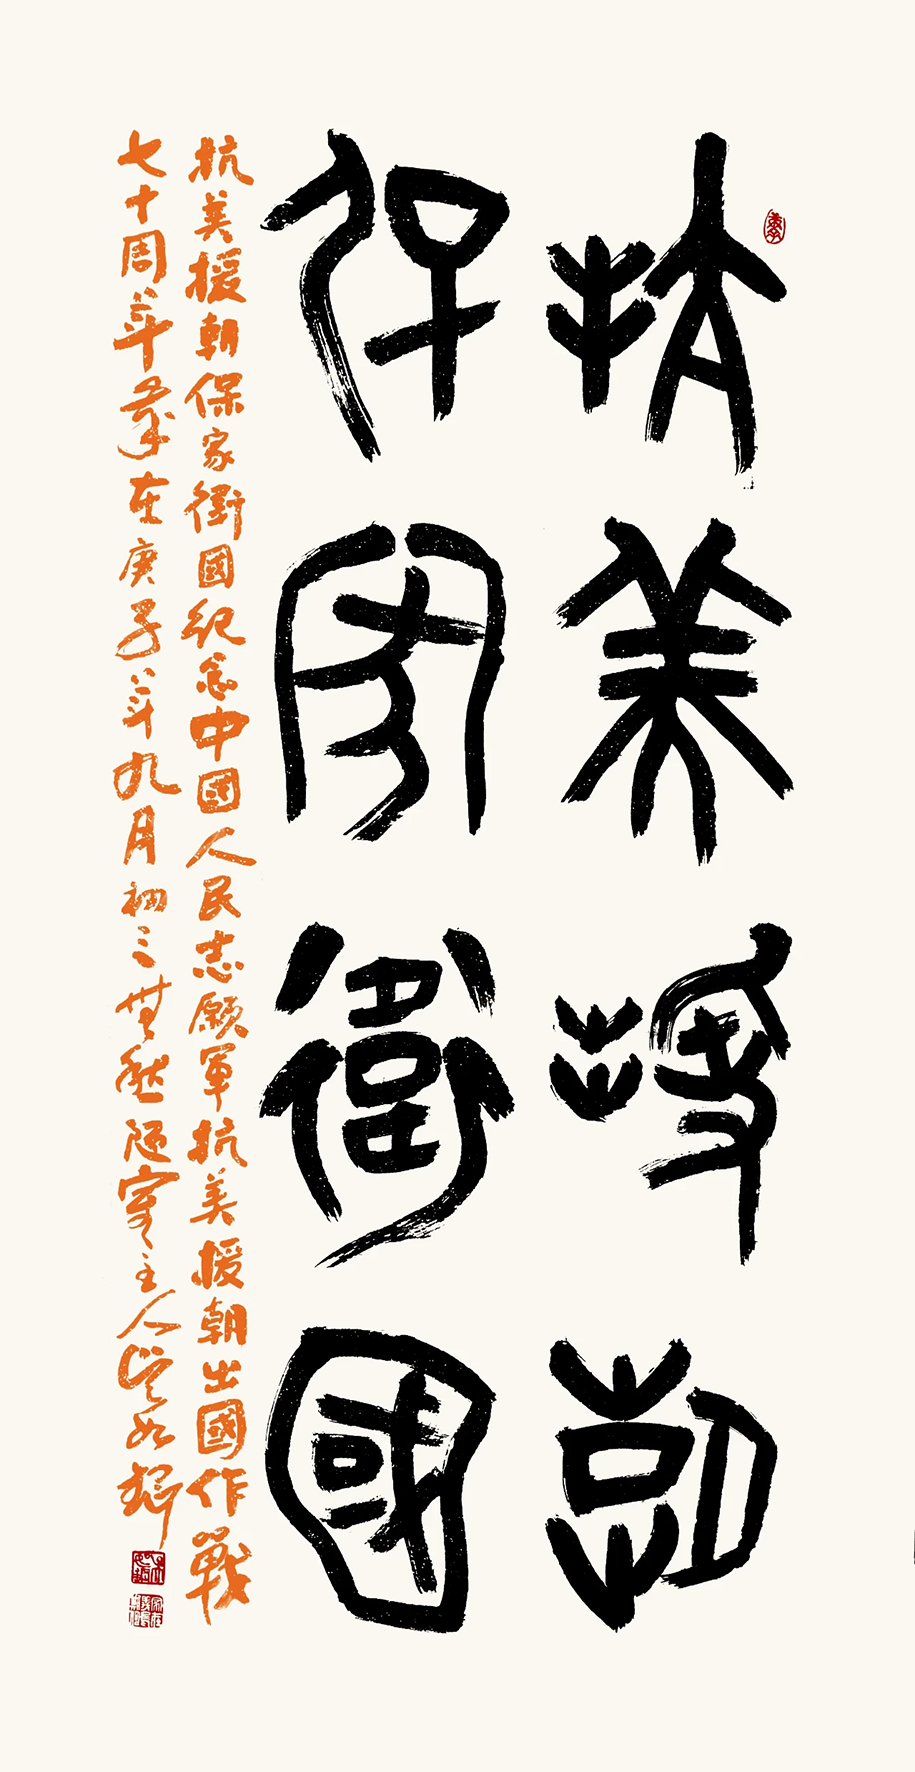 抗美援朝
保家衛國
抗美援朝保家衛國紀念中國人民志願軍抗美援朝出國作戰
七十周年歲在庚子年九月初三無愁陋室主人岩如鐸